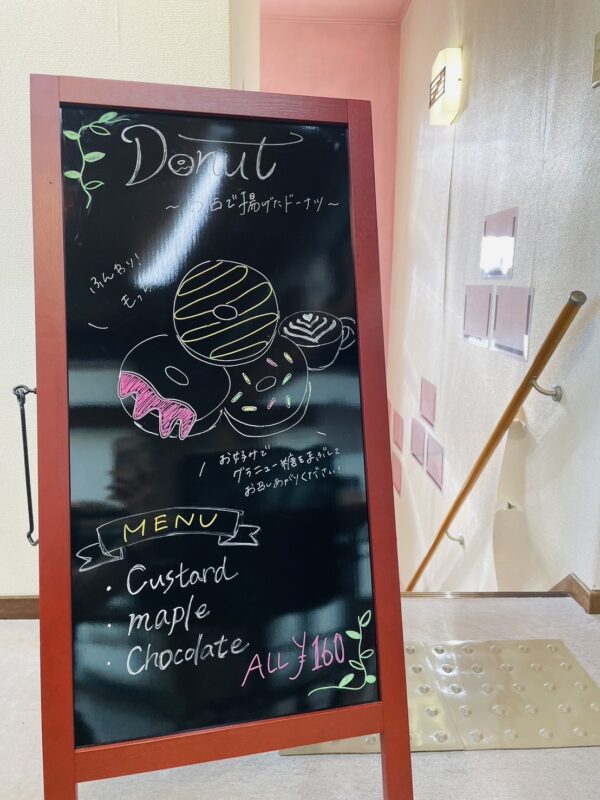 Donut
で揚げたドーナツ～
ふんわり!
お好みで
グラニュー糖をまぶして
お召しあがりください!
MENU
・Custard
・maple
・Chocolate
ALL ¥160